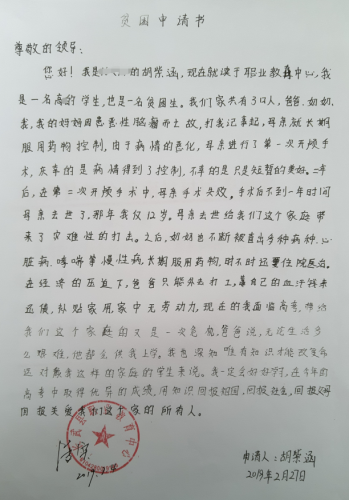 贫困申请书
尊敬的领导:
您好!我是 的胡紫涵,现在就读于职业教育中心,我
是一名高 的学生,也是一名贫困生。我们家共有3口人,爸爸,奶奶,
我,我的妈妈因患恶性脑瘤而亡故,打我记事起,母亲就长期
服用药物控制,由于病情的恶化,母亲进行了第一次开颅手
术,庆幸的是病情得到了控制,不幸的是只是短暂的美好。二年
后,在第二次开颅手术中,母亲手术失败。手术后不到一年时间
母亲去世了,那年我仅12岁。母亲去世给我们这个家庭带
来了灾难性的打击。之后,奶奶也不断被查出多种疾病,心
脏病、哮喘等慢性病,长期服用药物,时不时还要住院医治。
在经济的压迫下,爸爸只能外去打工,靠自己的血汗钱来
还债,补贴家用,家中无劳动力,现在的我面临高考,
我们这个家庭的又是一次危机,爸爸说,无论生活多
么艰难,他都会供我上学。我也深知唯有知识才能改变命
运对像我这样的家庭的学生来说。我一定会好好学习,在今年的
高考中取得优异的成绩,用知识回报祖国,回报社会,回报父母
回报关爱我们这个家的所有人。
申请人:胡紫涵
2019年2月27日